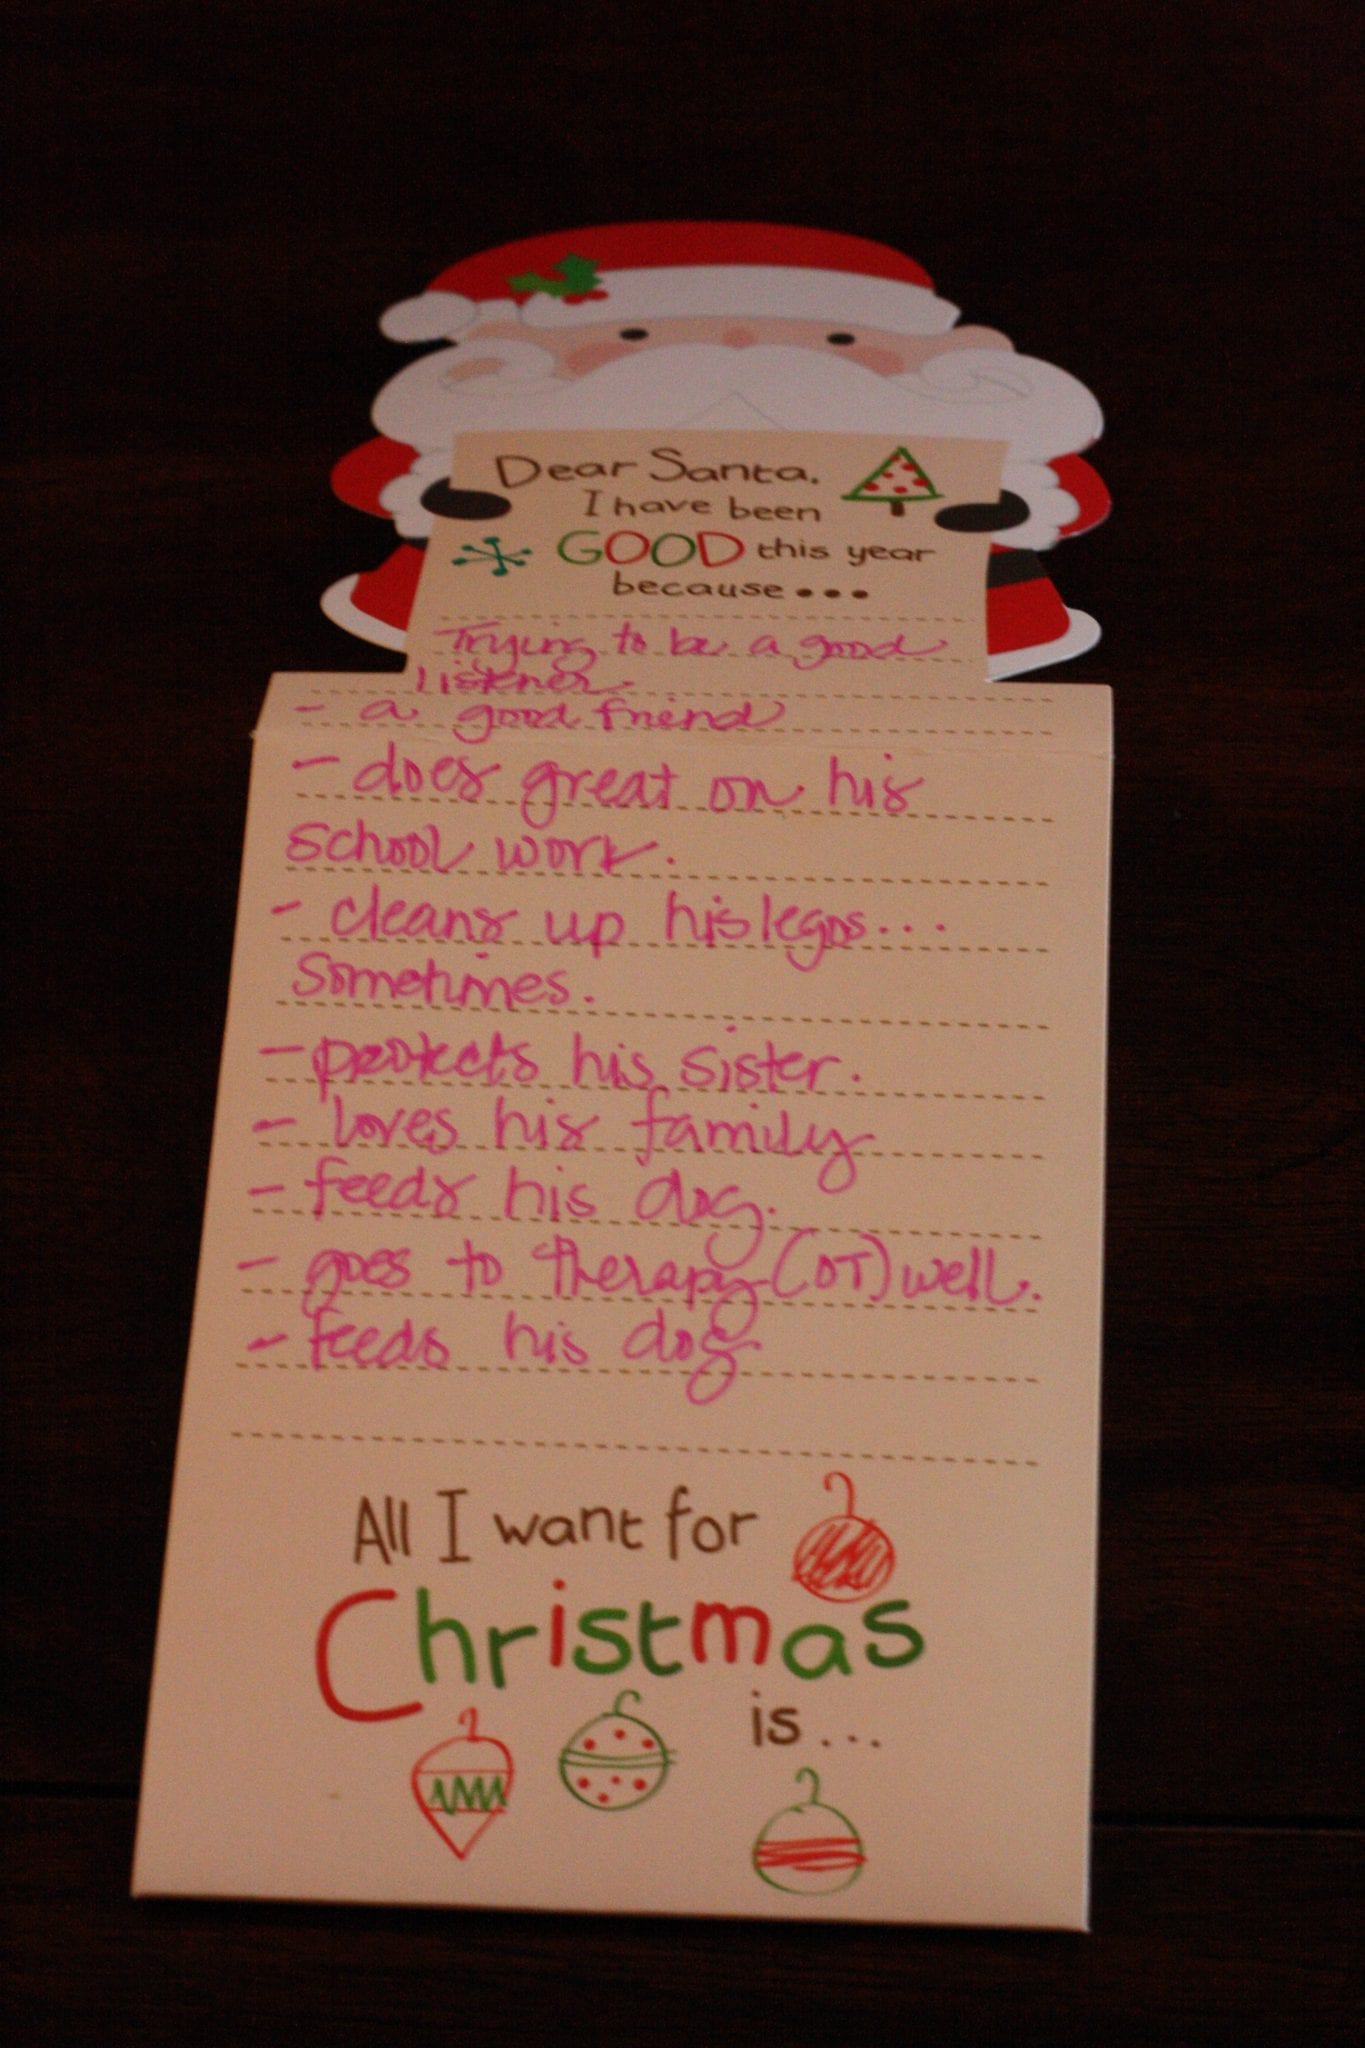 Dear Santa,
I have been
GOOD this year
because...
Trying to be a good
listener.
- a good friend
- does great on his
school work.
- cleans up his legos...
Sometimes.
- protects his sister.
- loves his family
- feeds his dog.
- goes to therapy (OT) well.
- feeds his dog
All I want for
Christmas
is...